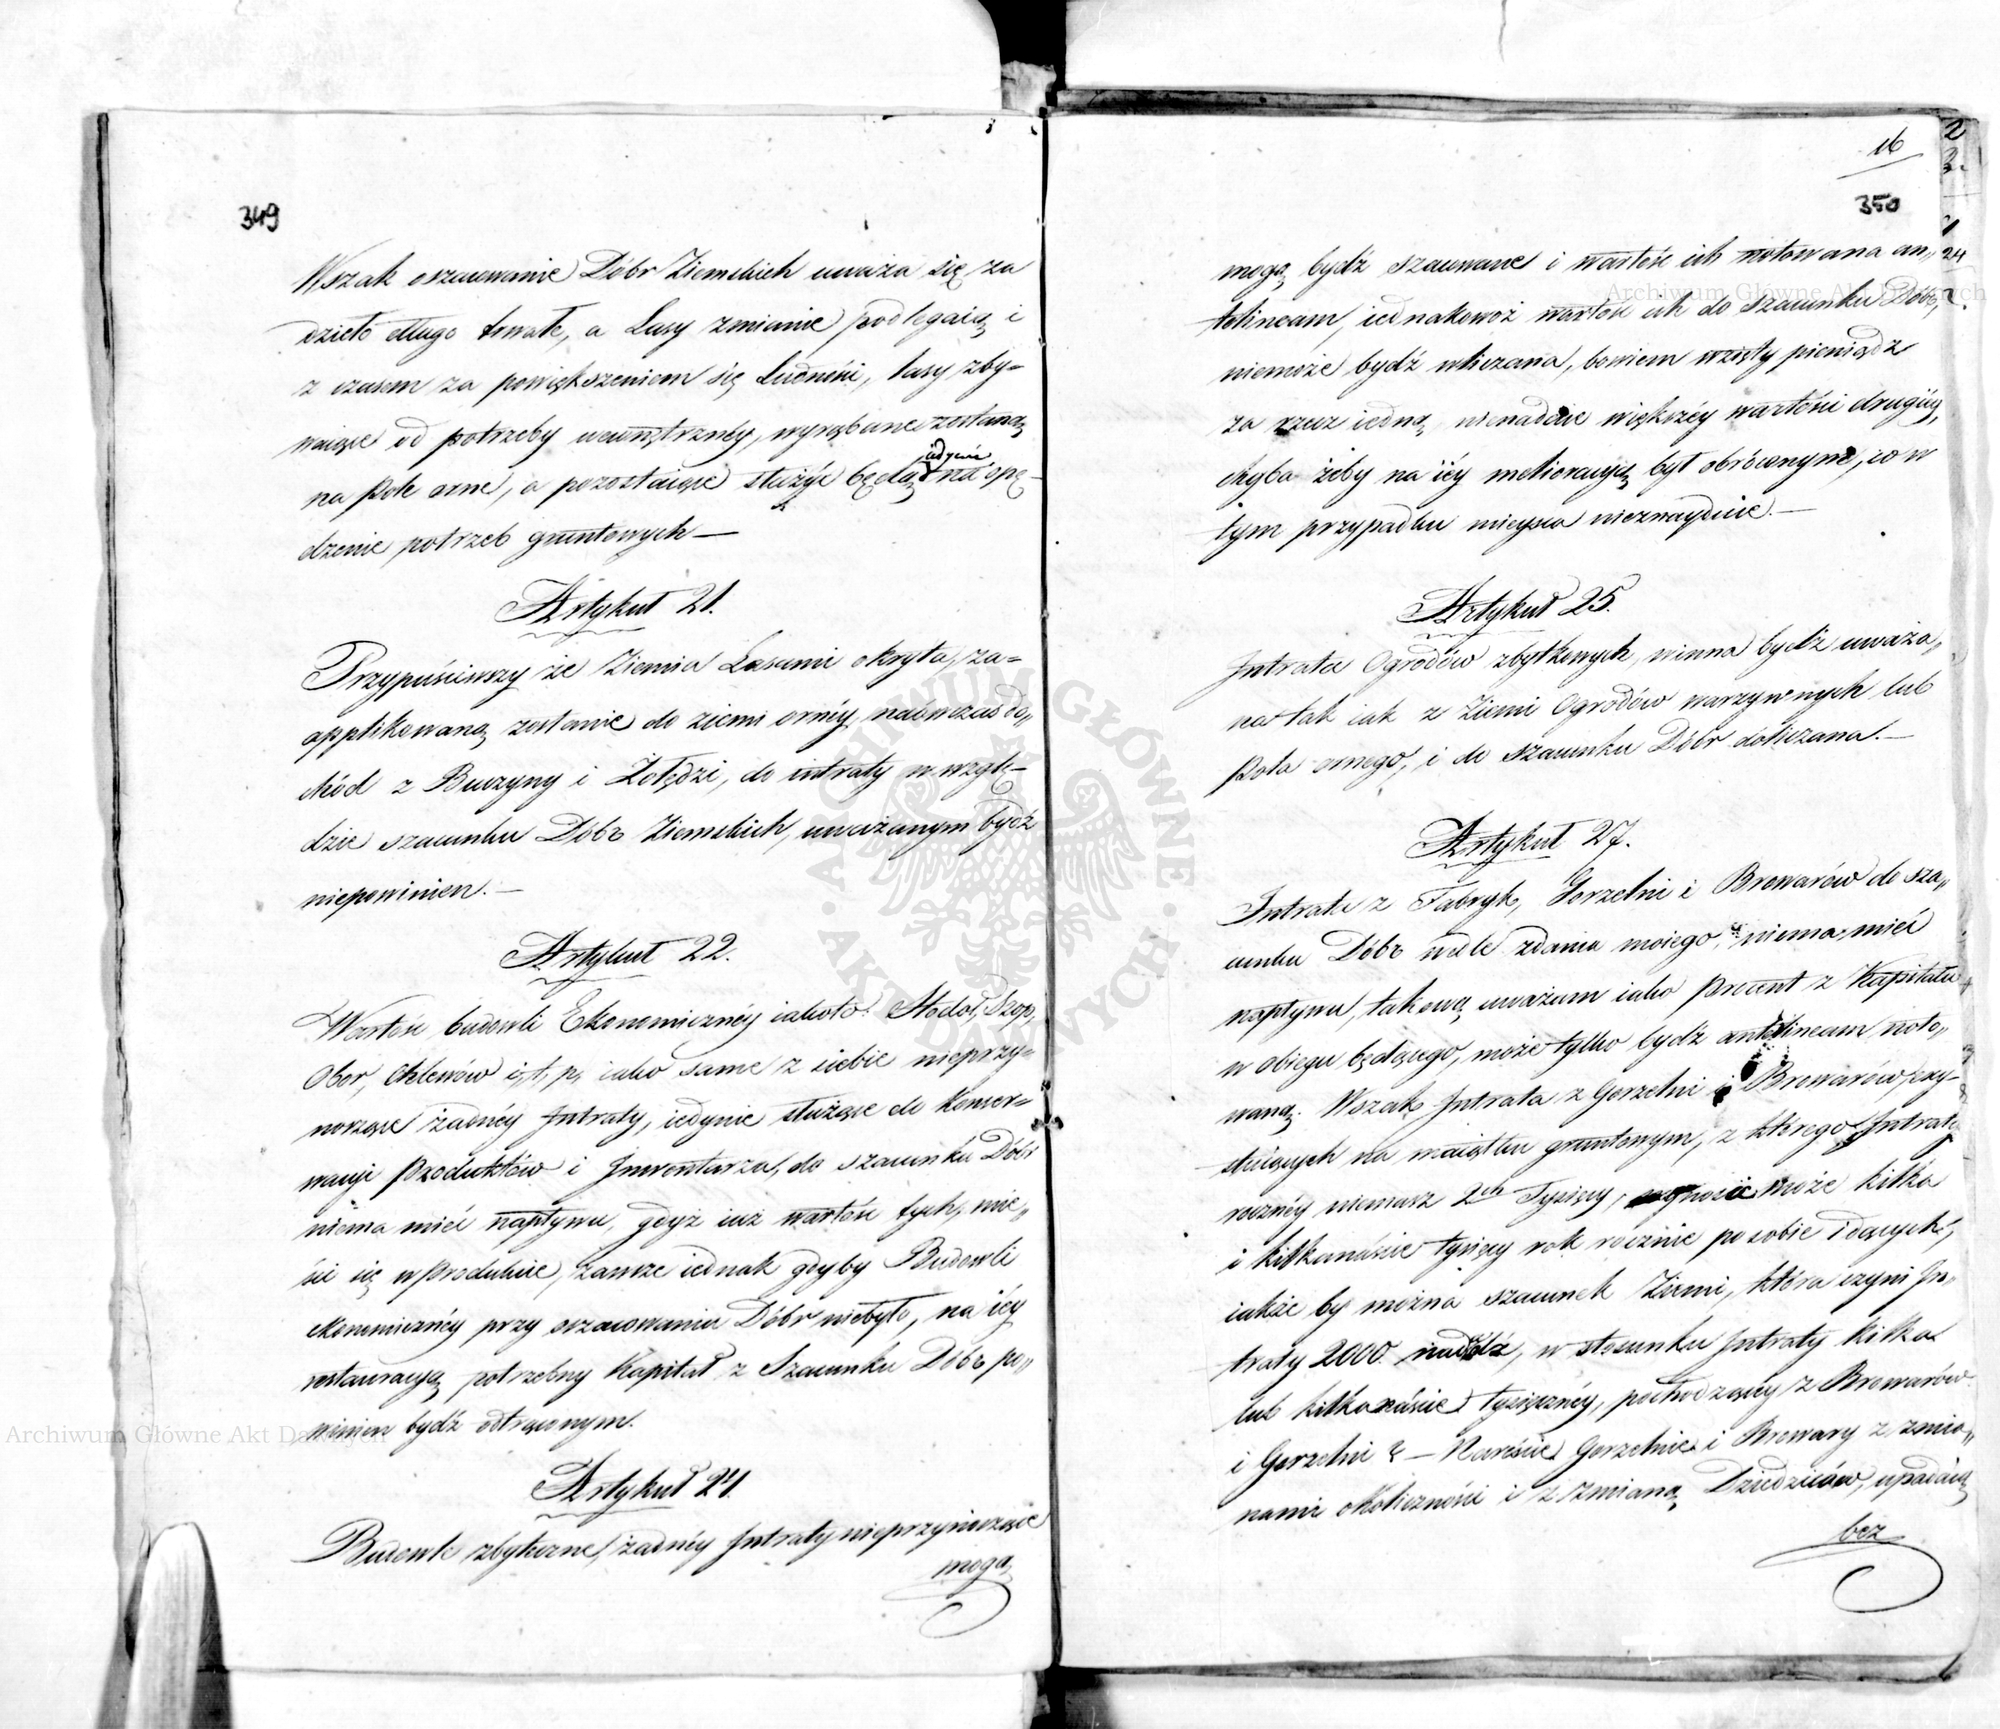 349
Wszak oszacowanie Dóbr Ziemskich uważa się za
dzieło długo trwałe, a Lasy zmianie podlegaią i
z czasem za powiększeniem się Ludności, lasy zby-
waiące od potrzeby wewnętrznéy, wyrąbane zostaną
na Pole orne, a pozostaiące służyć będą iedynie na opę-
dzenie potrzeb gruntowych —
Artykuł 21.
Przypuściwszy że Ziemia Lasami okryta, za-
applikowaną zostanie do ziemi ornéy, naówczas do„
chód z Buczyny i Żołędzi, do intraty w wzglę-
dzie szacunku Dóbr Ziemskich, uważanym bydź
niepowinien. —
Artykuł 22.
Wartość budowli Ekonomicznéy iakoto: Stodoł, Szop,
Obor, Chlewów i, t, p, iako same z siebie nieprzy-
noszące żadnéy Intraty, iedynie służące do konser-
wacyi Produktów i Inwentarza, do szacunku Dóbr
niema mieć wpływu, gdyż iuż wartość tych, mie„
ści się w Produkcie, zawsze iednak gdyby Budowli
ekonomicznéy przy oszacowaniu Dóbr niebyło, na iéy
restauracyą potrzebny Kapitał z Szacunku Dóbr po„
winien bydź odtrąconym.
Artykuł 24.
Budowle zbytkowne, żadnéy Intraty nieprzynoszące
mogą
16
350
mogą bydź szacowane i wartość ich notowana an„
telineam, iednakowoż wartość ich do szacunku Dóbr,
niemoże bydź wliczana, bowiem wzięty pieniądz
za rzecz iedną, nienadaie większéy wartości drugiéy,
chyba żeby na iéy melioracyą był obróconym, co w
tym przypadku mieysca nieznayduie. —
Artykuł 25.
Intrata Ogrodów zbytkowych, winna bydź uważa„
na tak iak z Ziemi Ogrodów warzywnych lub
Pola ornego, i do szacunku Dóbr doliczana. —
Artykuł 27.
Intrata z Fabryk, Gorzelni i Browarów do sza„
cunku Dóbr wedle zdania moiego, niema mieć
wpływu, takową uważam iako Procent z Kapitału
w obiegu będącego, może tylko bydź antelineam noto„
waną. Wszak Intrata z Gorzelni i Browarów, exy-
stuiących na maiątku gruntowym, z którego Intraty
rocznéy niemasz 2ch Tysięcy, wynosić może kilka
i kilkanaście tysięcy rok rocznie po sobie idących,
iakże by można szacunek Ziemi, która czyni In„
traty 2000. , w stosunku Intraty kilka
lub kilkanaście tysięcznéy, pochodzącey z Browarów
i Gorzelni? — Nareście Gorzelnie i Browary z zmia„
nami okoliczności i z zmianą Dziedziców, upadaią
bez